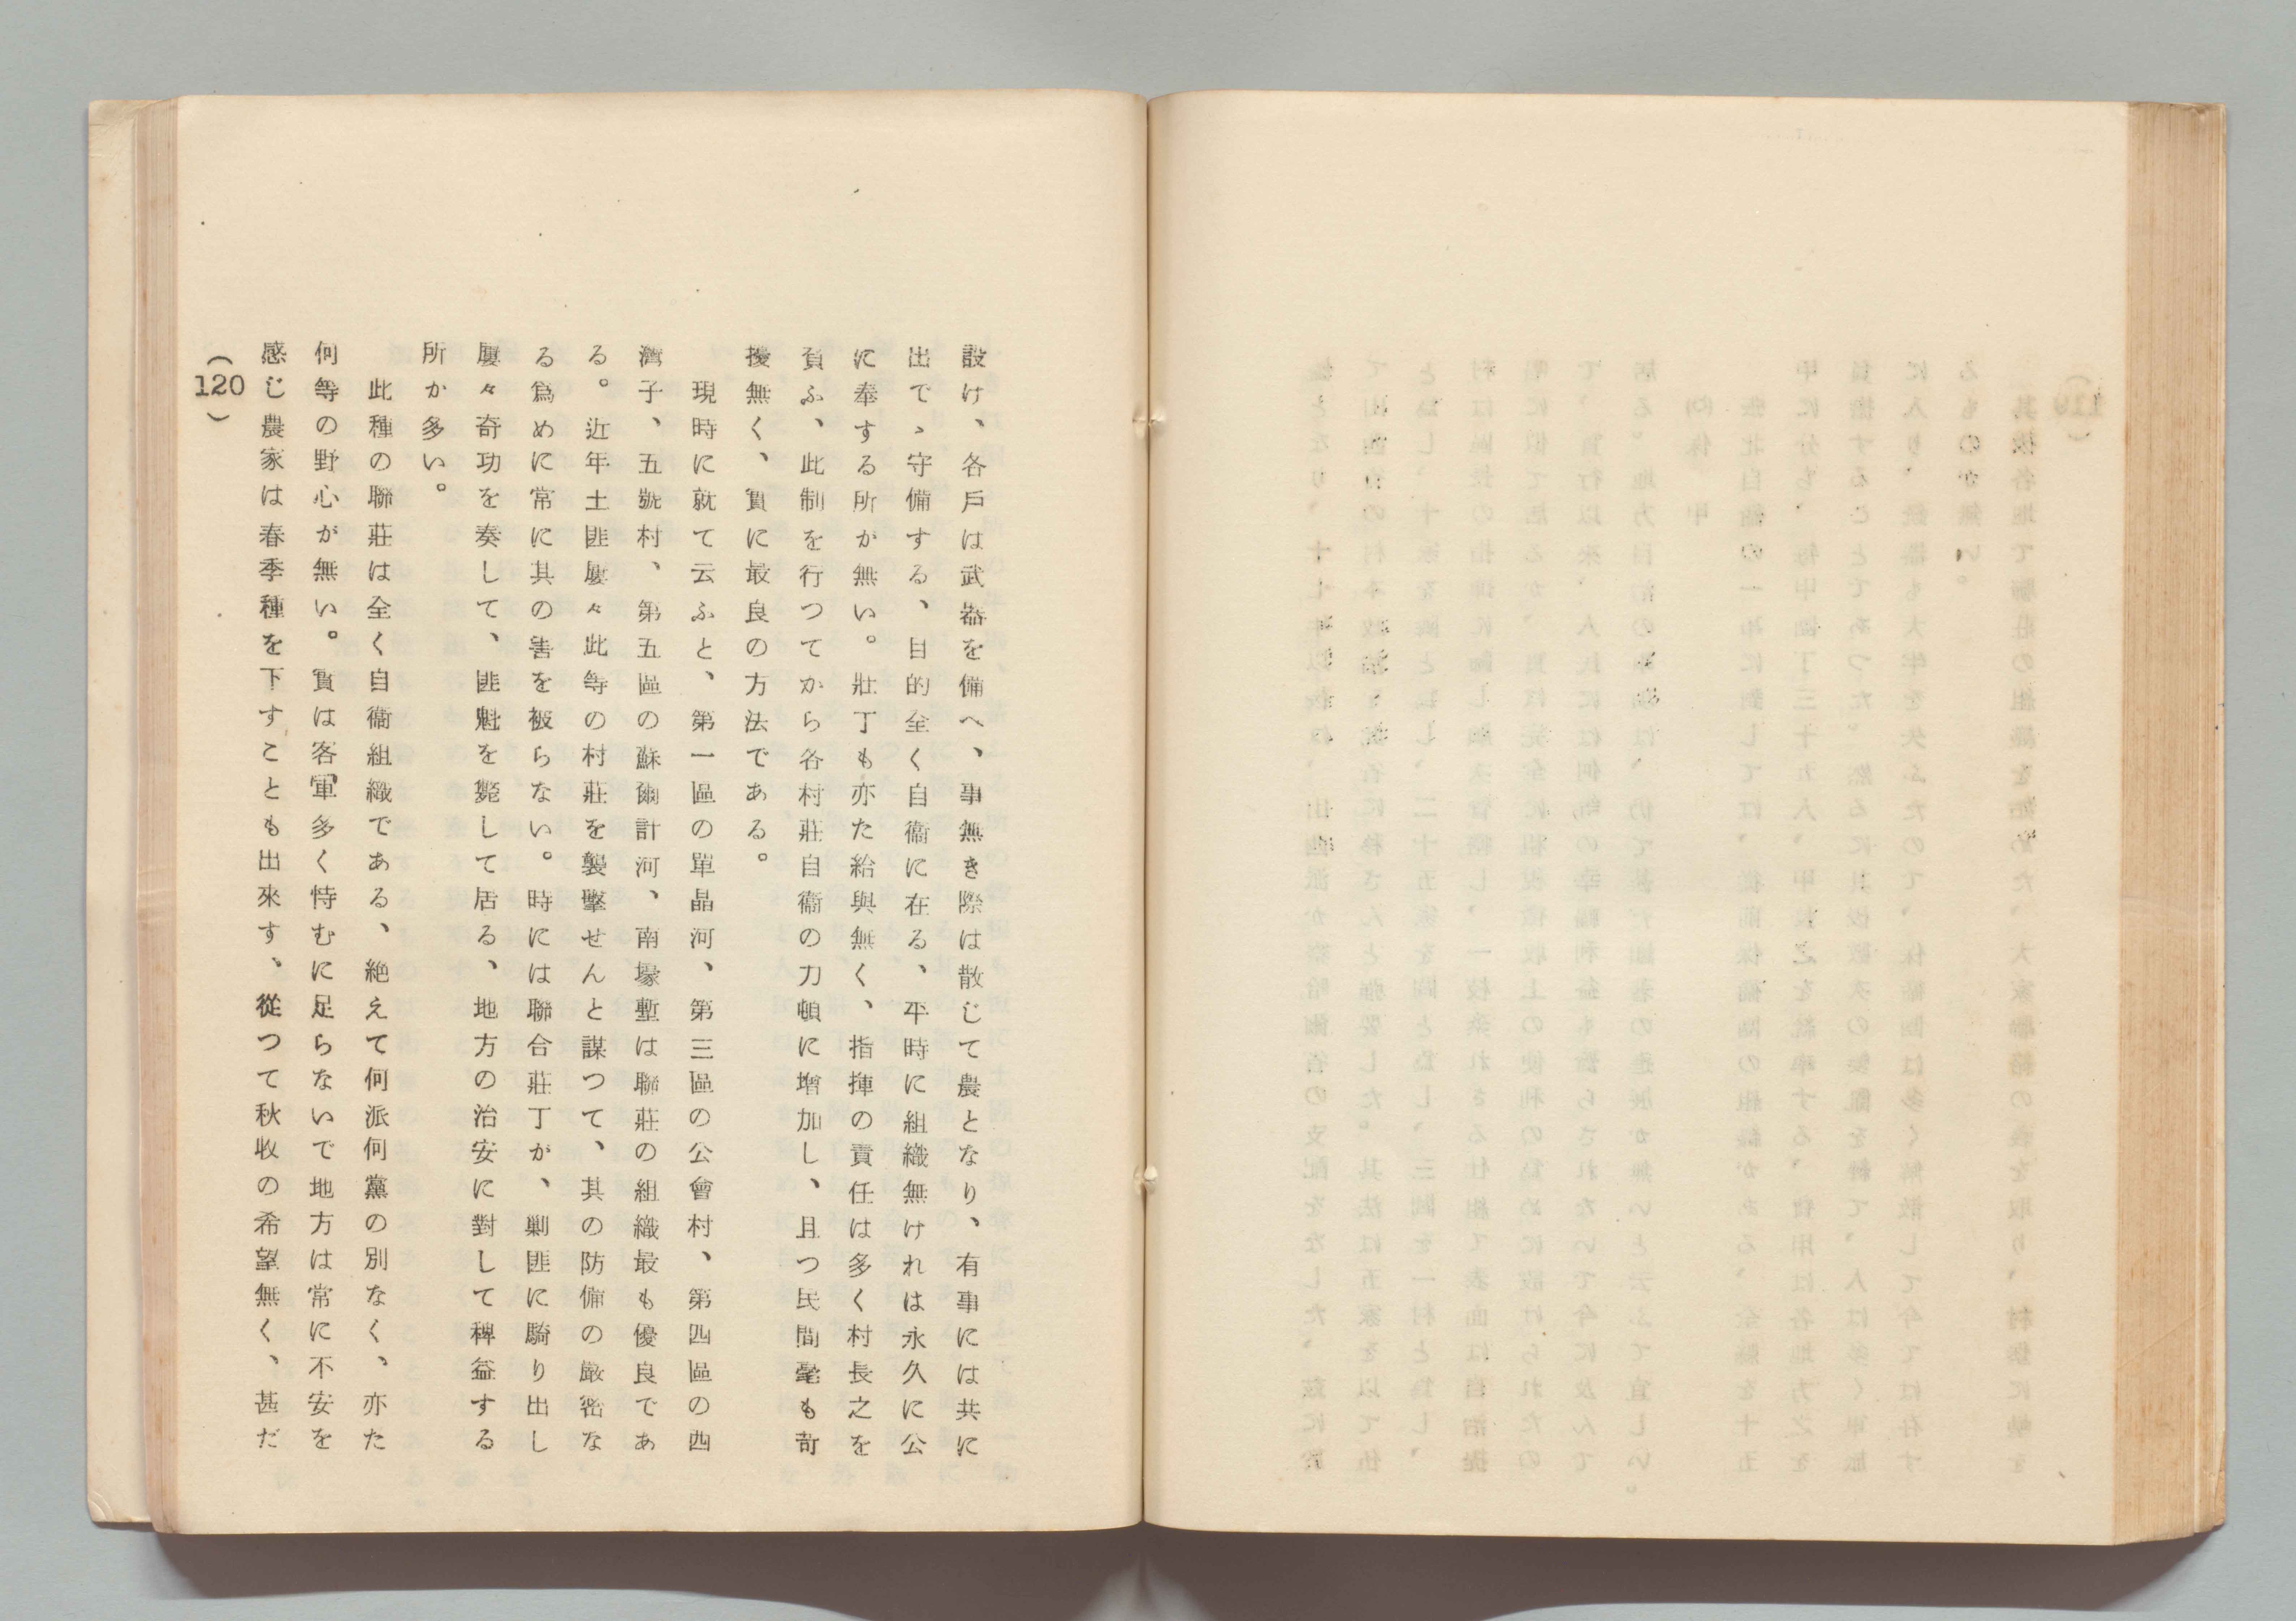 設け、各戶は武器を備へ、事無き際は散じて農となり、有事には共に
出でゝ守備する、目的全く自衞に在る、平時に組織無ければ永久に公
に奉する所が無い。壯丁も亦た給與無く、指揮の責任は多く村長之を
負ふ、此制を行つてから各村莊自衞の力頓に增加し、且つ民間毫も苛
擾無く、實に最良の方法である。
現時に就て云ふと、第一區の單晶河、第三區の公會村、第四區の四
濟子、五號村、第五區の蘇爾計河、南壕塹は聯莊の組織最も優良であ
る。近年土匪屢々此等の村莊を襲擊せんと謀つて、其の防備の嚴密な
る爲めに常に其の害を被らない。時には聯合莊丁が、剿匪に騎り出し
屢々奇功を奏して、匪魁を斃して居る、地方の治安に對して稗益する
所か多い。
此種の聯莊は全く自衞組織である、絕えて何派何黨の別なく、亦た
何等の野心が無い。實は客軍多く恃むに足らないで地方は常に不安を
感じ農家は春季種を下すことも出來す、從つて秋收の希望無く、甚だ
(120)